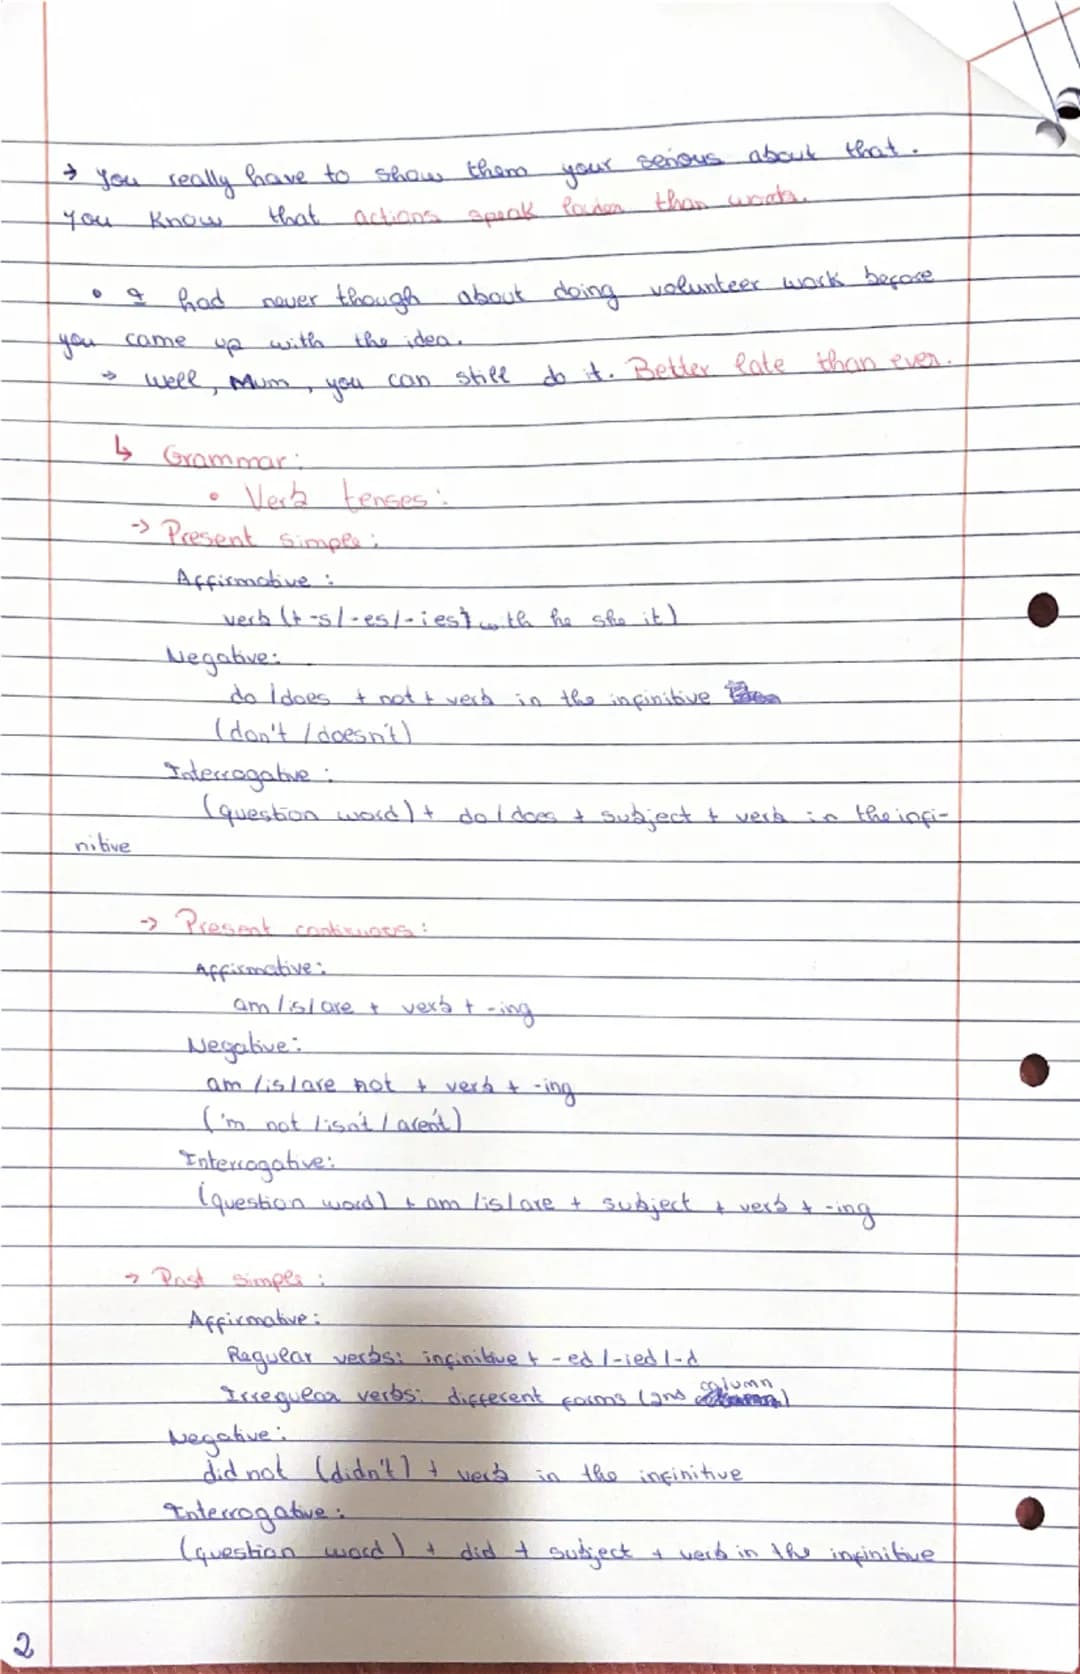 → You really have to show them your serious about that.
You know that actions speak louder than words.
• I had never though about doing volunteer work before
you came up with the idea.
→ Well, Mum, you can still do it. Better late than ever.
↳ Grammar:
• Verb tenses:
→ Present simple:
Affirmative:
verb (+ -s/-es/-ies) with he she it)
Negative:
do /does + not + verb in the infinitive
(don't / doesn't)
Interrogative:
(question word) + do / does + subject + verb in the infi-
nitive
→ Present continuous:
Affirmative:
am /is/ are + verb + -ing
Negative:
am /is/are not + verb + -ing
('m not /isn't / aren't)
Interrogative:
(question word) + am /is/are + subject + verb + -ing
→ Past simple:
Affirmative:
Regular verbs: infinitive + -ed /-ied /-d
Irregular verbs: different forms (2nd column)
Negative:
did not (didn't) + verb in the infinitive
Interrogative:
(question word) + did + subject + verb in the infinitive
2